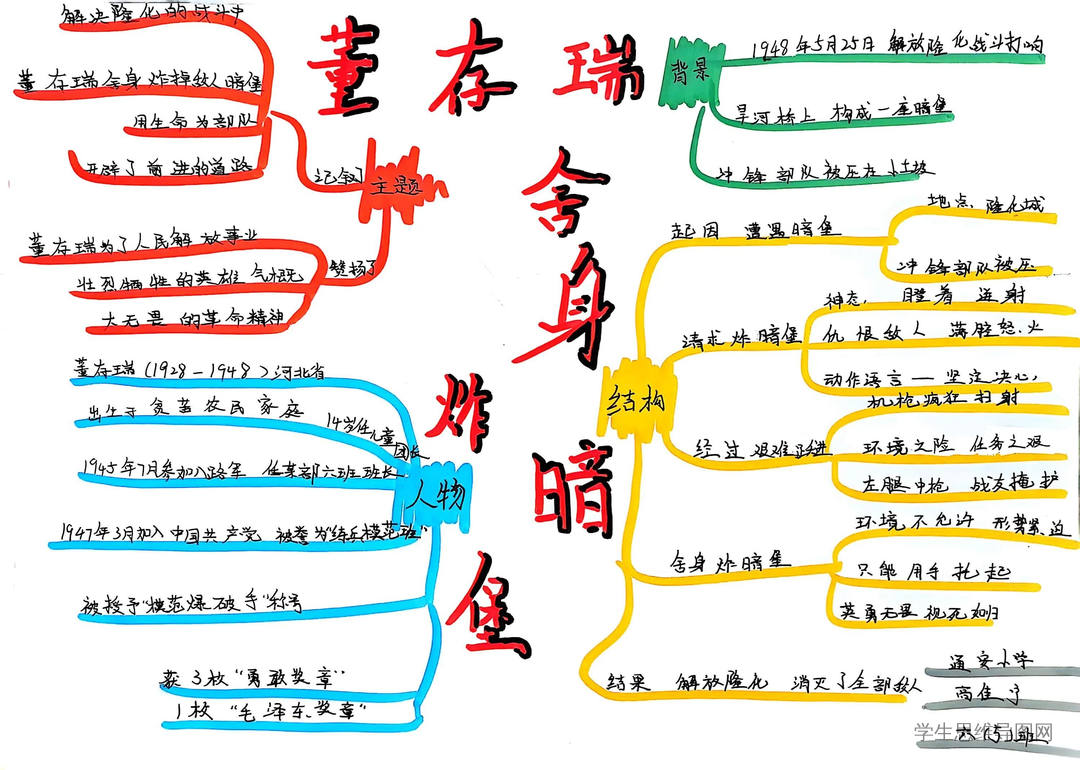 董存瑞
舍身
炸暗
堡
主题
记叙了
解决隆化的战斗中
董存瑞舍身炸掉敌人暗堡
用生命为部队
开辟了前进的道路
赞扬了
董存瑞为了人民解放事业
壮烈牺牲的英雄气概
大无畏的革命精神
背景
1948年5月25日 解放隆化战斗打响
旱河桥上 构成一座暗堡
冲锋部队被压在小土坡
结构
起因 遭遇暗堡
地点:隆化城
冲锋部队被压
请求炸暗堡
神态: 瞪着 迸射
仇恨敌人 满腔怒火
动作语言—坚定决心
经过艰难
机枪疯狂扫射
环境之险 任务之艰
左腿中枪 战友掩护
舍身炸暗堡
环境不允许 形势紧迫
只能用手托起
英勇无畏 视死如归
结果 解放隆化 消灭了全部敌人
人物
董存瑞(1928-1948)河北省
出生于贫苦农民家庭
14岁任儿童
团长
1945年7月参加八路军 任某部六班班长
1947年3月加入中国共产党 被誉为"练兵模范班"
被授予"模范爆破手"称号
获3枚"勇敢奖章"
1枚"毛泽东奖章"
通安小学
高佳
六(5)班
学生思维导图网